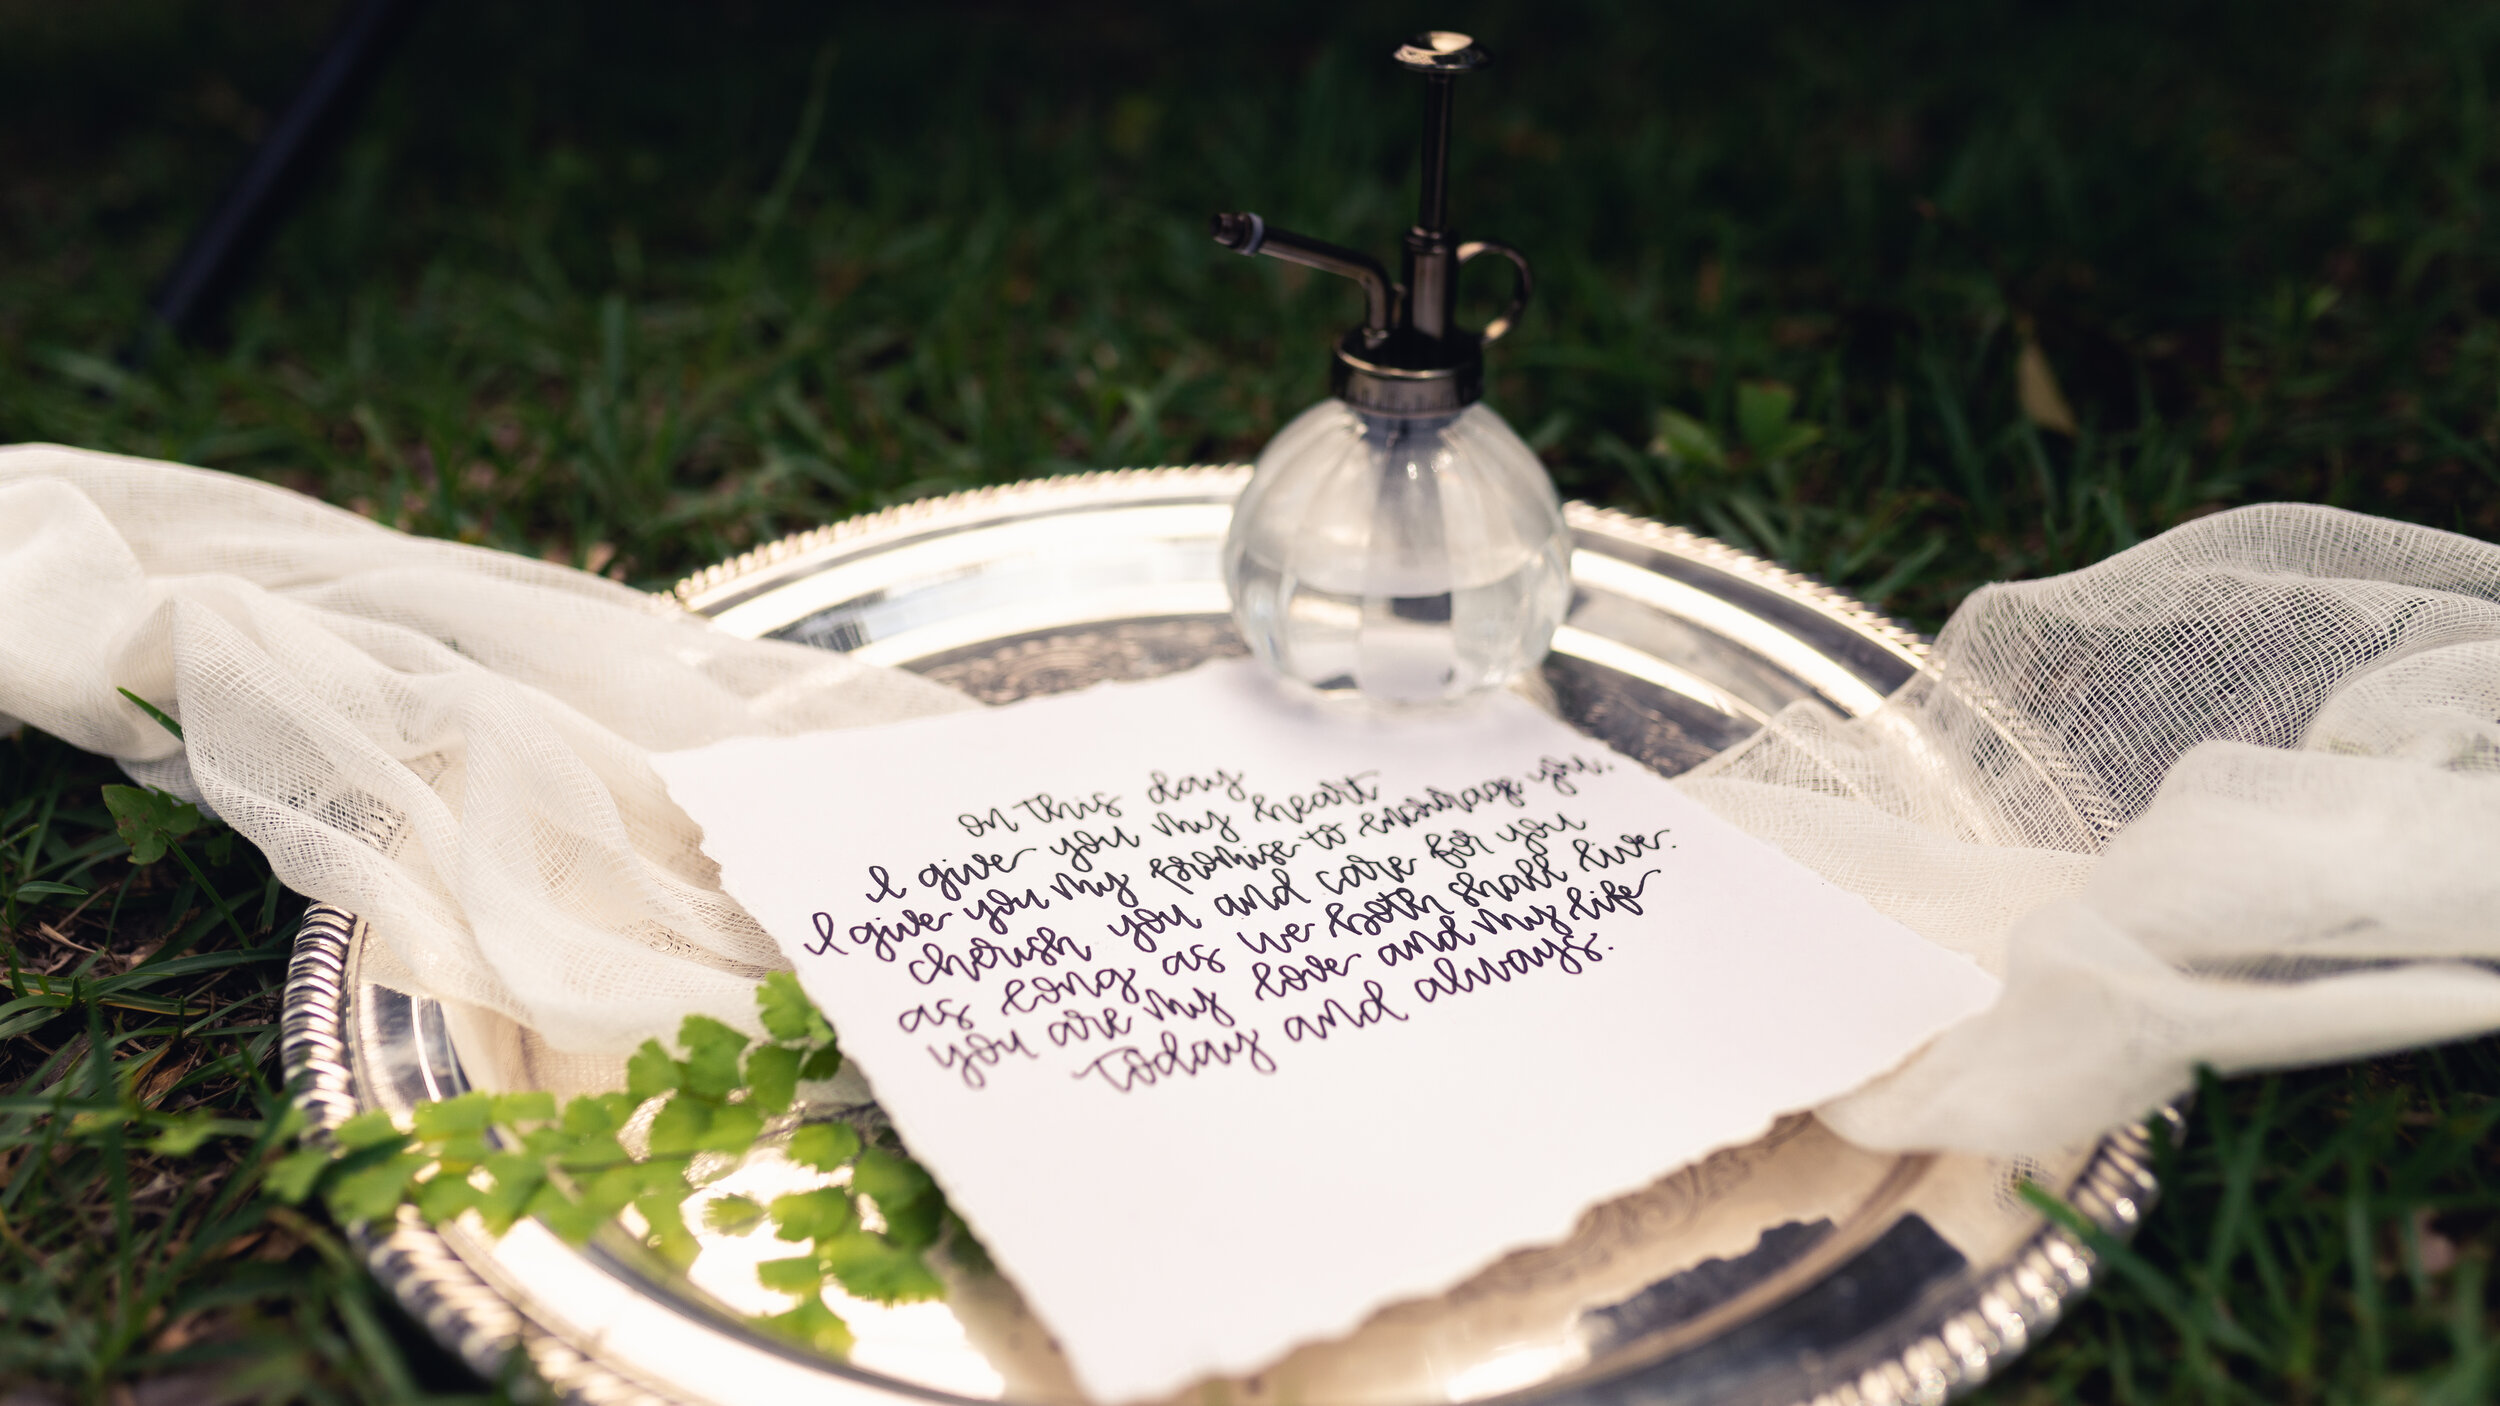 on this day
I give you my heart
I give you my promise to encourage you.
cherish you and care for you
as long as we both shall live.
you are my love and my life
Today and always.